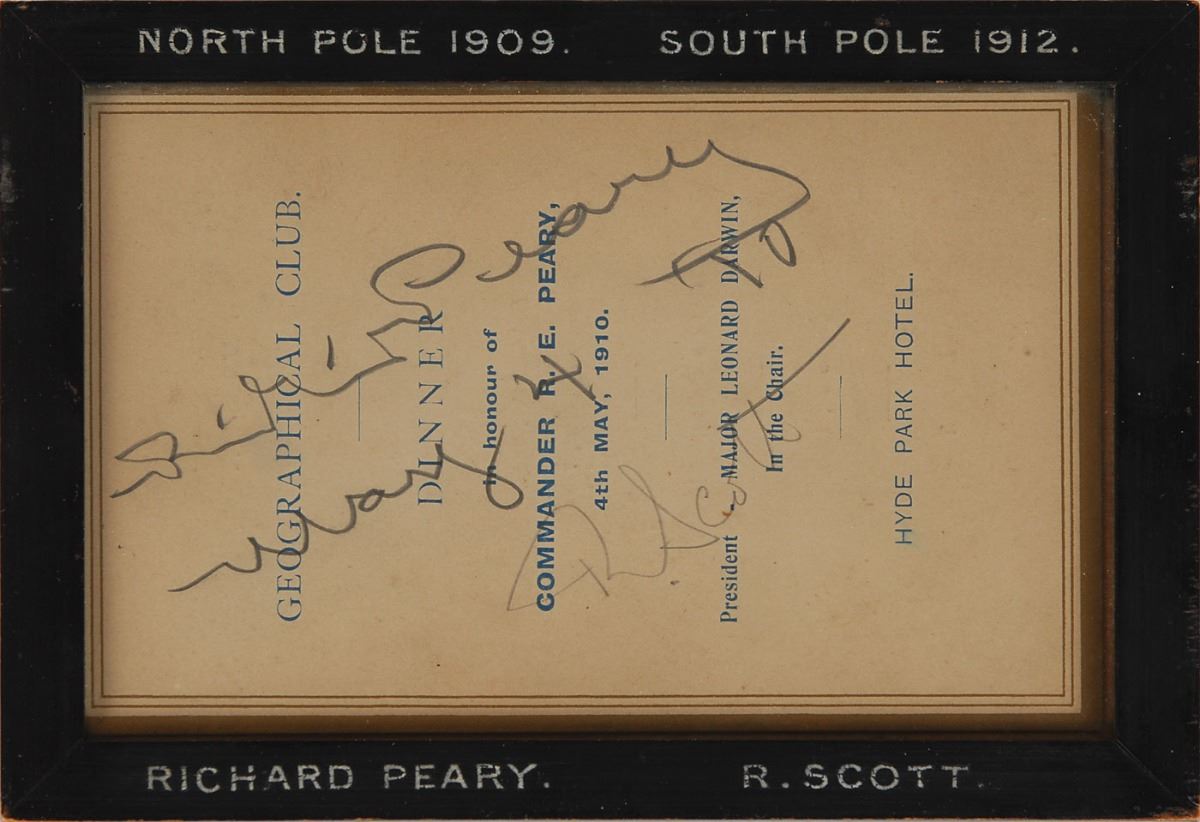 NORTH POLE 1909. SOUTH POLE 1912.
GEOGRAPHICAL CLUB.
DINNER
in honour of
COMMANDER R. E. PEARY,
4th MAY, 1910.
President - MAJOR LEONARD DARWIN,
In the Chair.
HYDE PARK HOTEL.
Peary
R Scott
RICHARD PEARY. R. SCOTT.